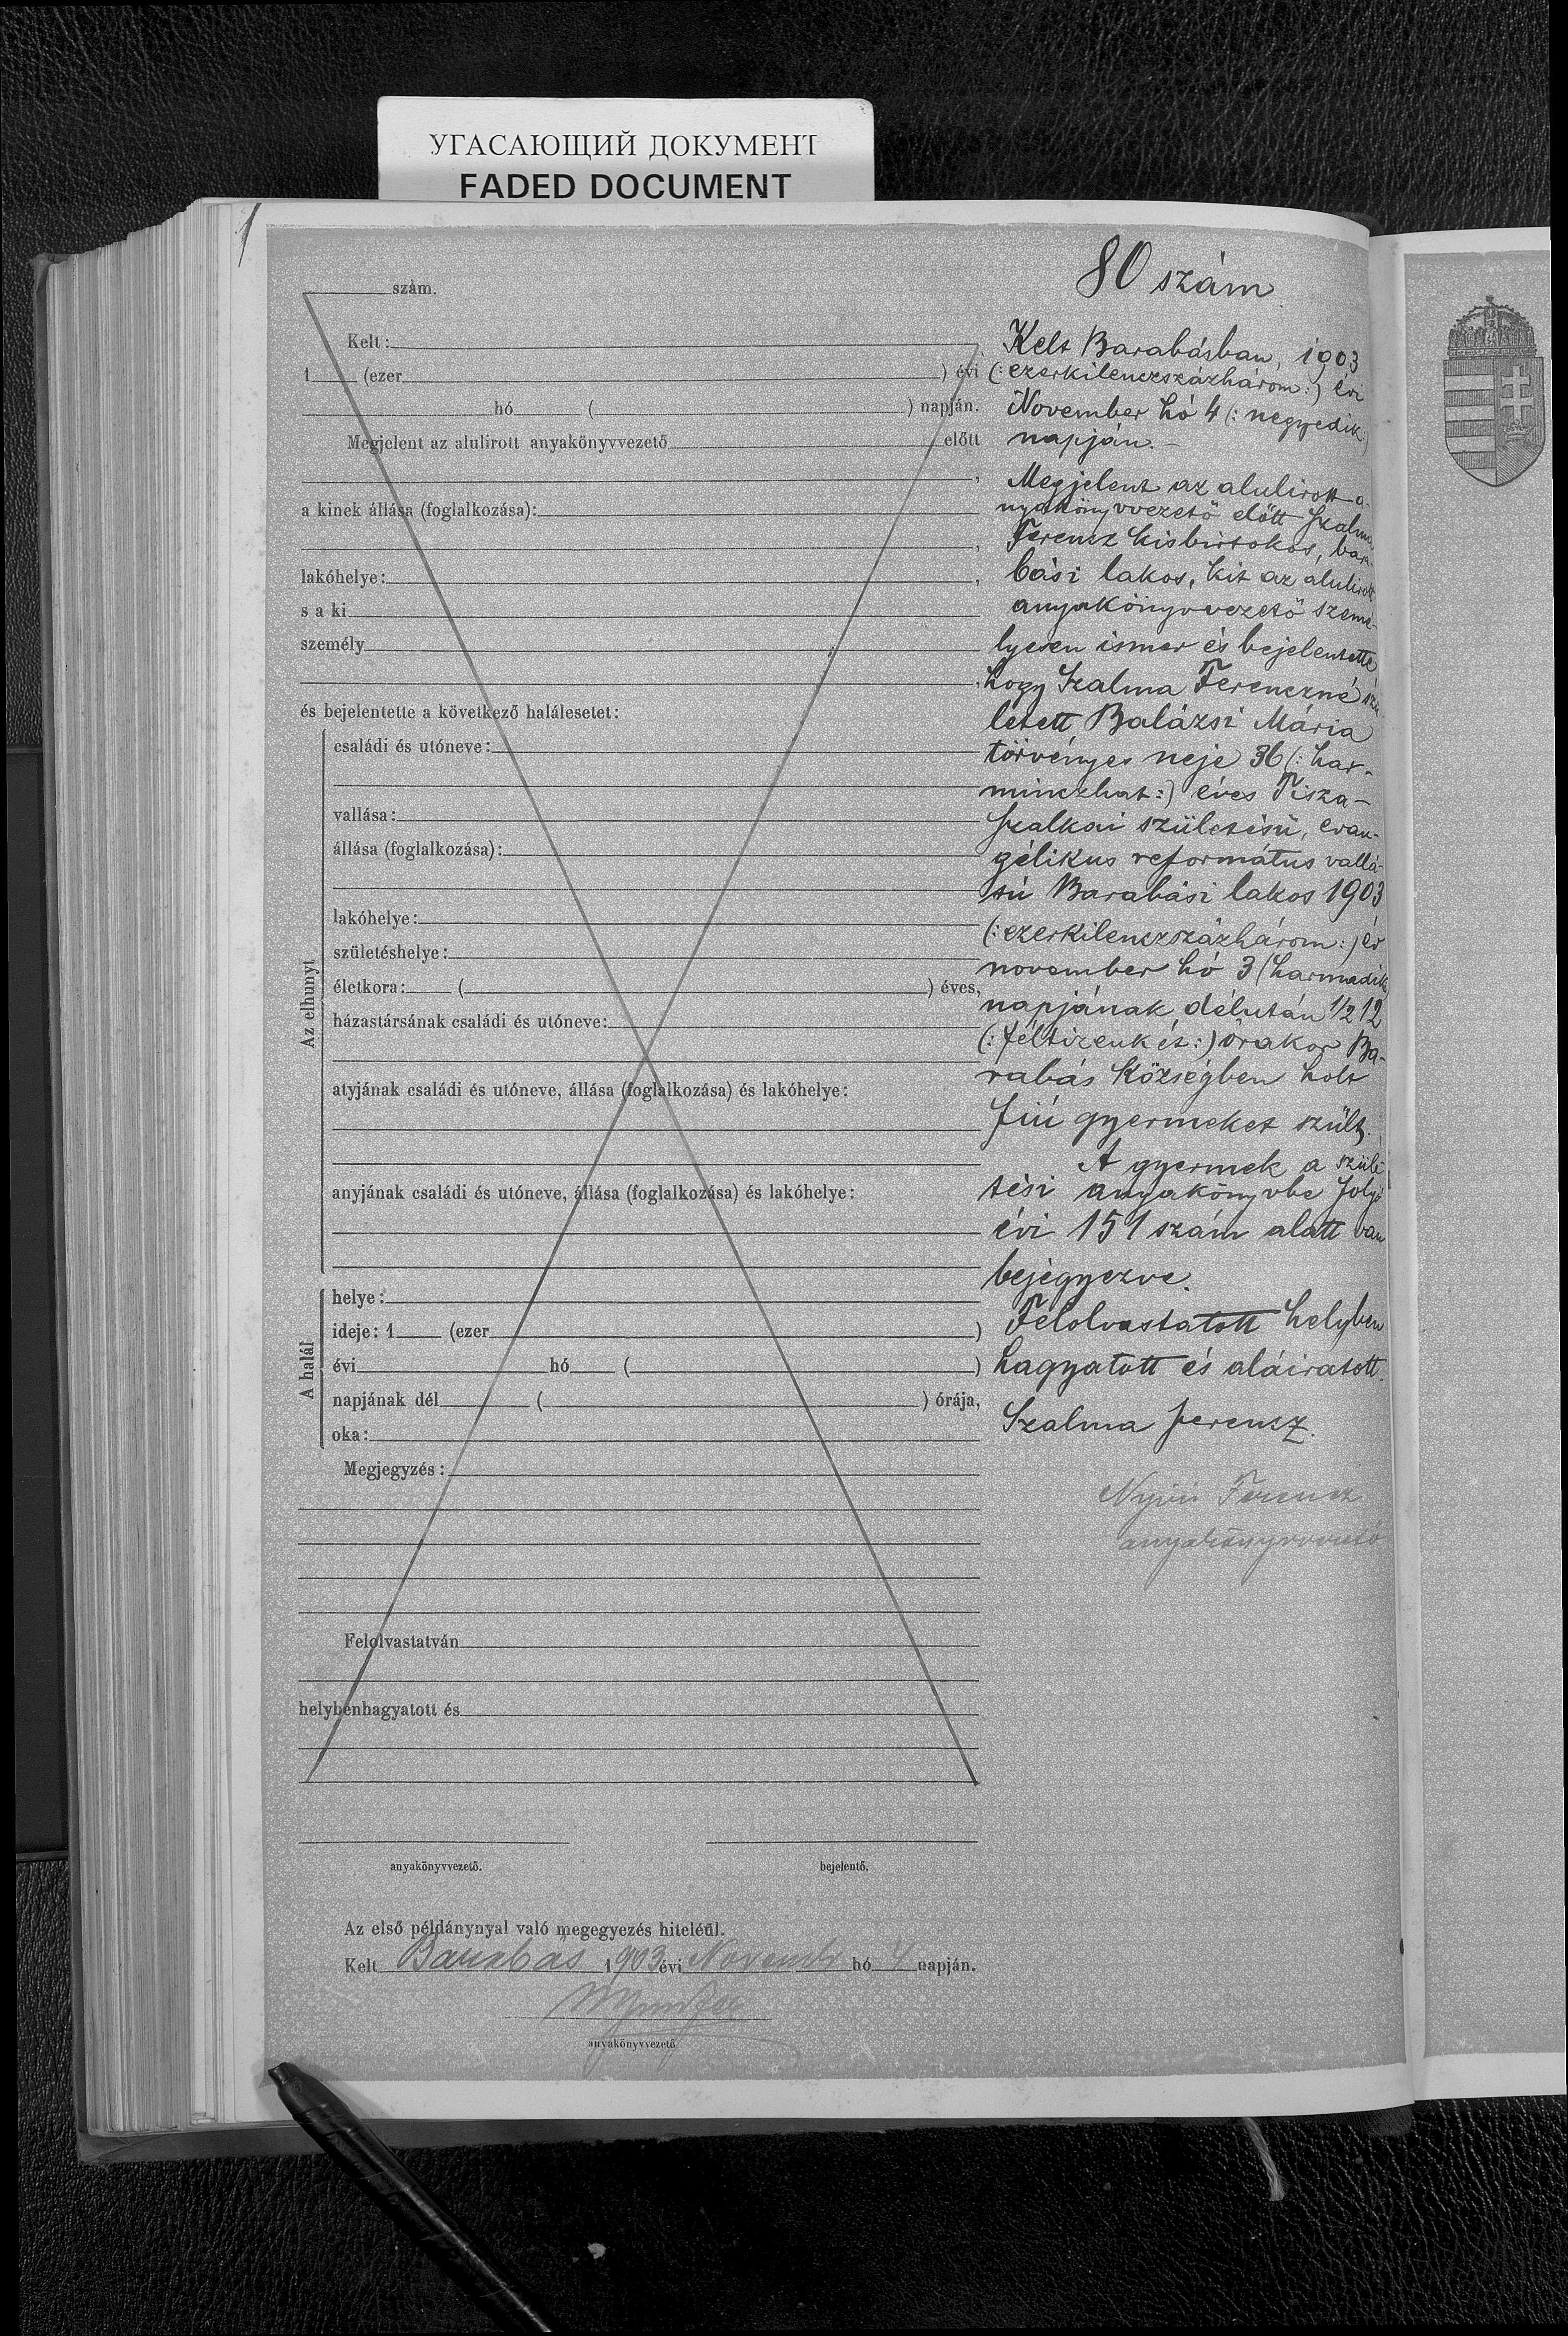 УГАСАЮЩИЙ ДОКУМЕНТ
FADED DOCUMENT
szám.
Kelt:
1 (ezer ) évi
hó ( ) napján.
Megjelent az alulirott anyakönyvvezető előtt
,
a kinek állása (foglalkozása):
,
lakóhelye: ,
s a ki
személy
,
és bejelentette a következő halálesetet:
Az elhunyt
családi és utóneve:
vallása:
állása (foglalkozása):
lakóhelye:
születéshelye:
életkora: ( ) éves,
házastársának családi és utóneve:
atyjának családi és utóneve, állása (foglalkozása) és lakóhelye:
anyjának családi és utóneve, állása (foglalkozása) és lakóhelye:
A halál
helye:
ideje: 1 (ezer )
évi hó ( )
napjának dél ( ) órája,
oka:
Megjegyzés:
Felolvastatván
helybenhagyatott és
anyakönyvvezető. bejelentő.
Az első példánynyal való megegyezés hiteléül.
Kelt Barabás 1903 évi Novemb hó 4 napján.
anyakönyvvezető
80 szám
Kelt Barabásban, 1903
(: ezerkilenczszázhárom:) évi
November hó 4 (: negyedik:)
napján. –
Megjelent az alulirott a-
nyakönyvvezető előtt Szalma
Ferencz kisbirtokos, bara-
bási lakos, kit az alulirott
anyakönyvvezető szemé-
lyesen ismer és bejelentette
hogy Szalma Ferenczné szü
letett Balázsi Mária
törvényes neje 36 (: har-
minczhat:) éves Tisza-
szalkai születésü, evan-
gélikus református vallá-
sú Barabási lakos 1903
(: ezerkilenczszázhárom:) év
november hó 3 (harmadik)
napjának délután 1/2 12
(: féltizenkét:) órakor Ba-
rabás községben holt
fiú gyermeket szült.
A gyermek a szüle
tési anyakönyvbe folyó
évi 151 szám alatt van
bejegyezve.
Felolvastatott helyben
hagyatott és aláiratott.
Szalma Ferencz.
Ferencz
anyakönyvvezető